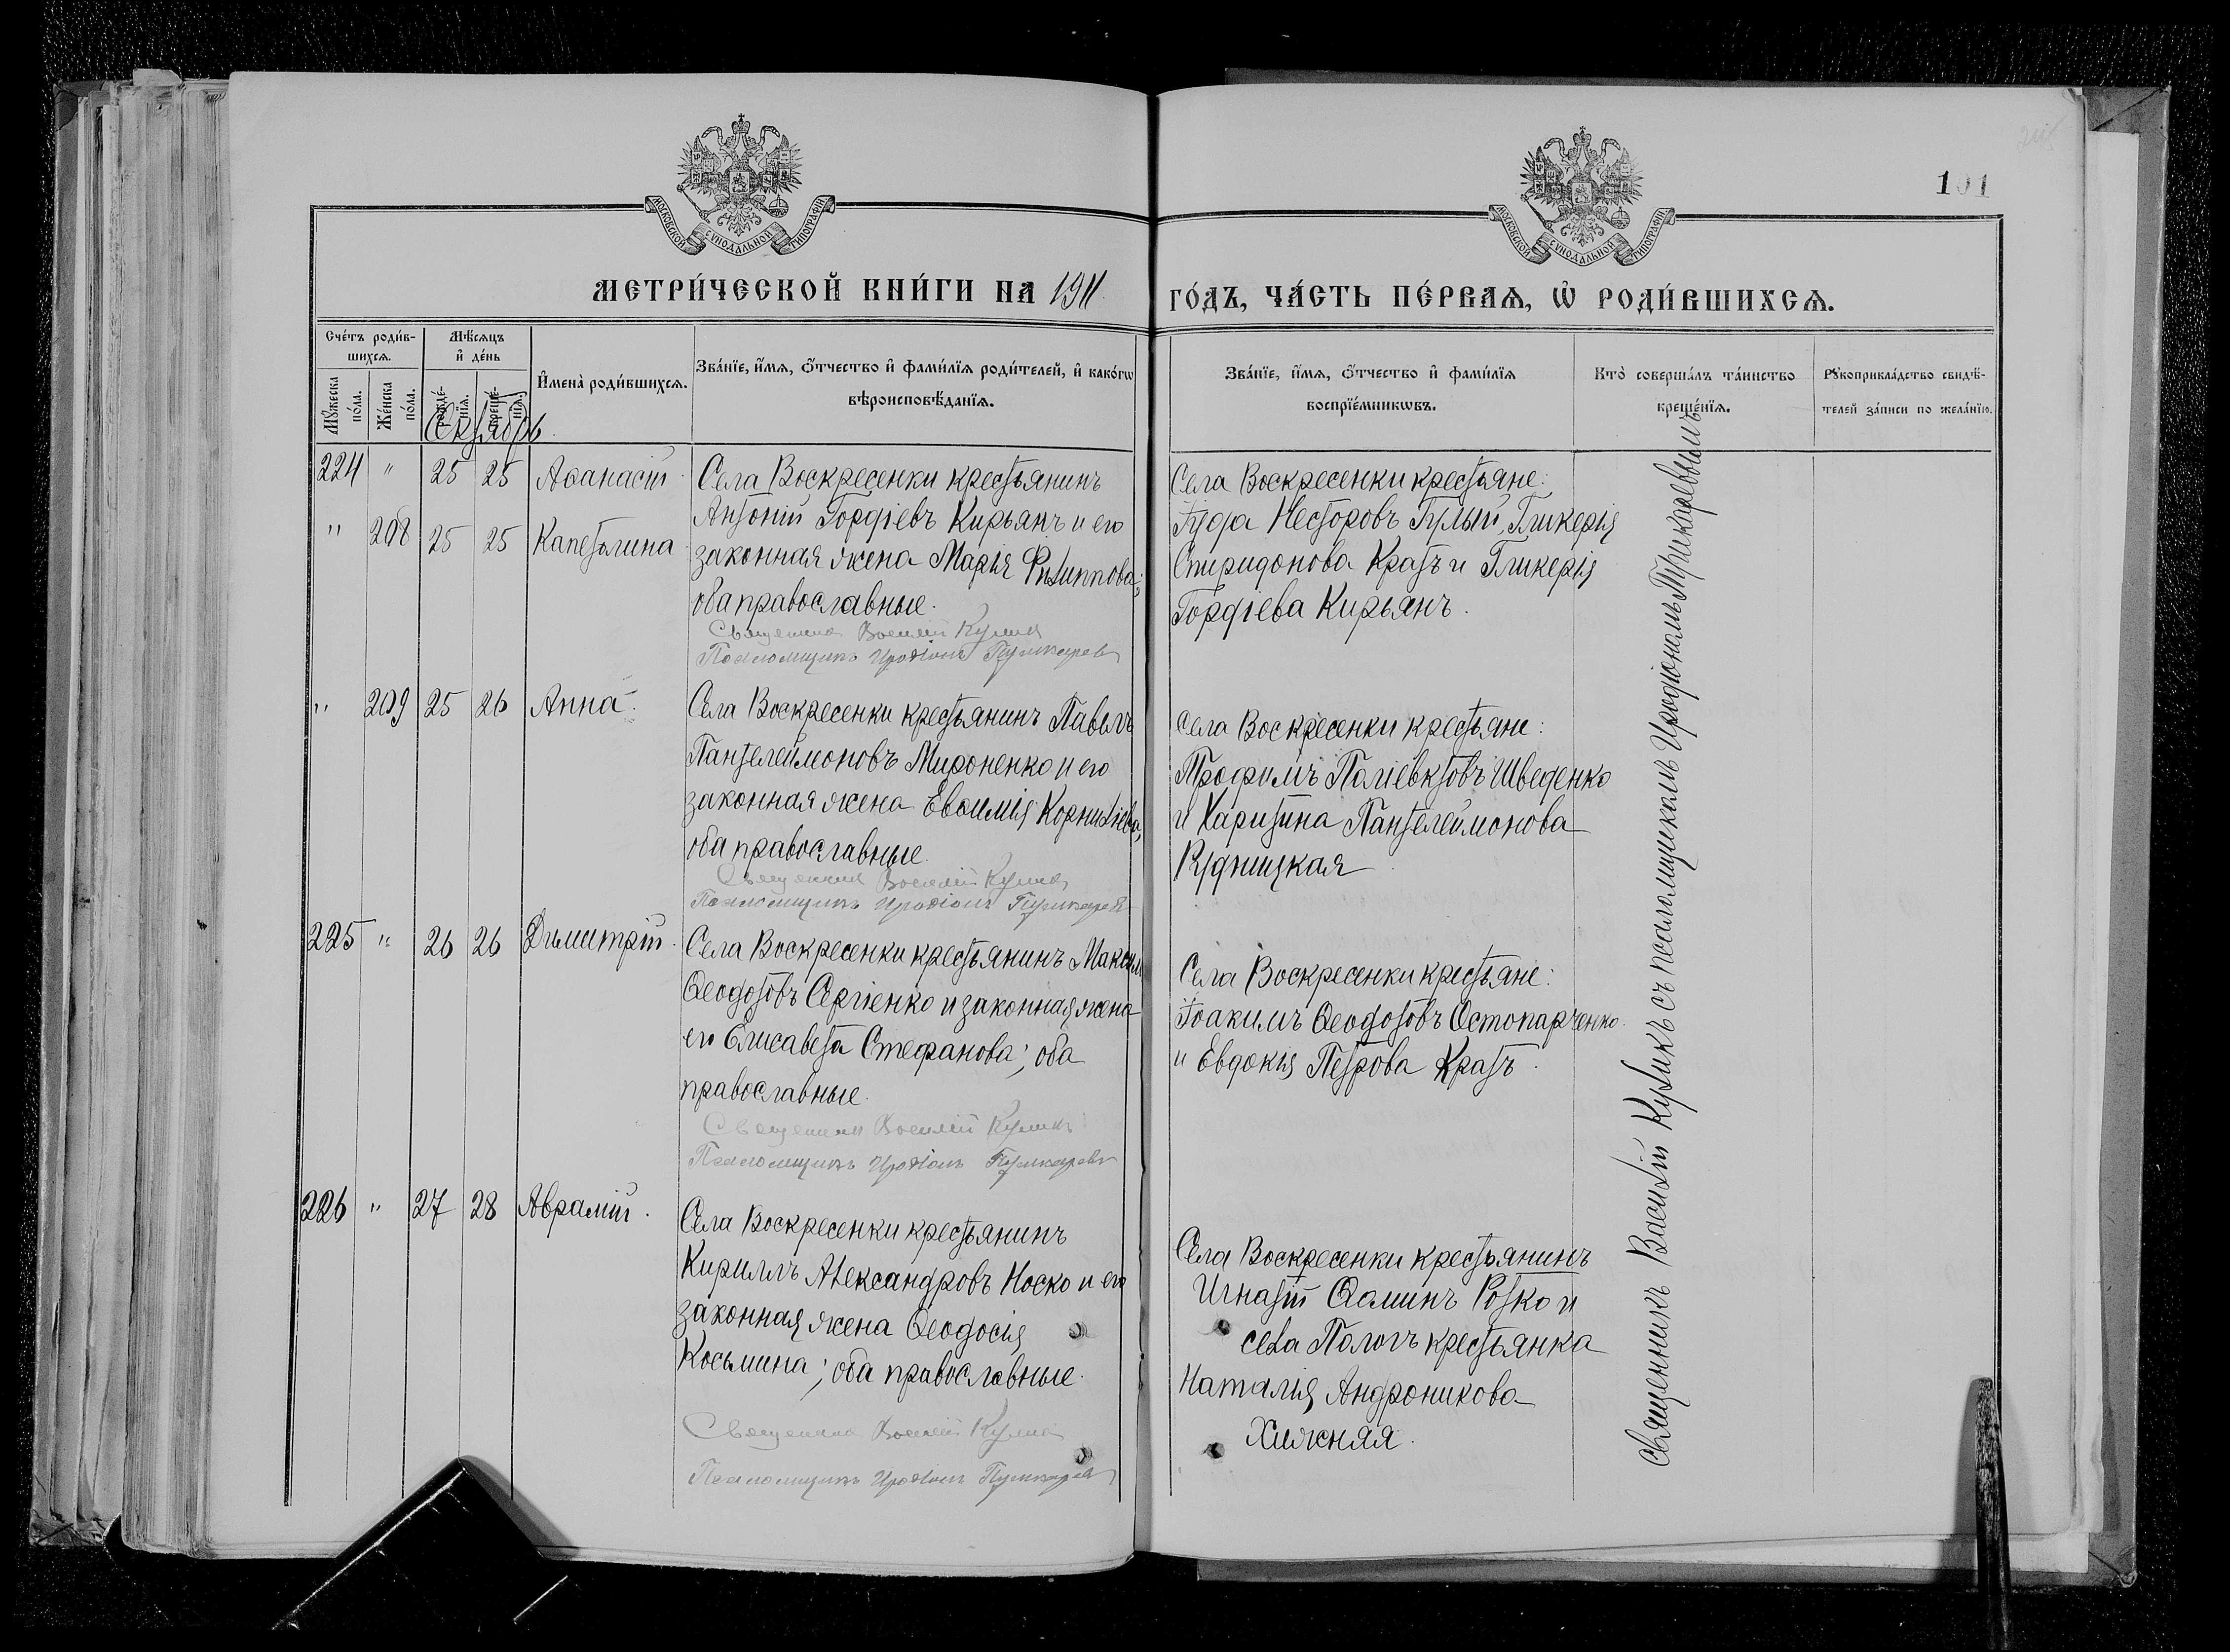 МОСКОВСКОЙ СѴНОДАЛЬНОЙ ТИПОГРАФІИ
МОСКОВСКОЙ СѴНОДАЛЬНОЙ ТИПОГРАФІИ
101
МЕТРИ́ЧЕСКОЙ КНИ́ГИ НА 1911
ГО́ДЪ, ЧА́СТЬ ПЕ́РВАЯ, Ѡ҆ РОДИ́ВШИХСЯ.
Сче́тъ роди́в-
шихся.
Мꙋ́жеска по́ла.
Же́нска по́ла.
Мѣ́сяцъ
и҆ де́нь
рожде́-нїя.
креще́-нїя.
И҆мена̀ роди́вшихся.
Зва́нїе, и҆́мя, ѻ҆́тчество и҆ фами́лїя роди́телей, и҆ како́гѡ
вѣроисповѣ́данїя.
Зва́нїе, и҆́мя, ѻ҆́тчество и҆ фами́лїя
воспрїе́мникѡвъ.
Кто̀ соверша́лъ та́инство
креще́нїя.
Рꙋкоприкла́дство свидѣ́-
телей за́писи по жела́нїю.
Октябрь
224 " 25 25 Аѳанасій
" 208 25 25 Капетолина
Села Воскресенки крестьянинъ
Антоній Гордіевъ Кирьянъ и его
законная жена Марія Филиппова;
оба православные.
Священникъ Василій Куликъ
Псаломщикъ Иродіонъ Пушкаревъ
Села Воскресенки крестьяне:
Іуда Несторовъ Гулый, Гликерія
Спиридонова Кратъ и Гликерія
Гордіева Кирьянъ.
" 209 25 26 Анна
Села Воскресенки крестьянинъ Павелъ
Пантелеймоновъ Мироненко и его
законная жена Евѳимія Корниліева,
оба православные.
Священникъ Василій Куликъ
Псаломщикъ Иродіонъ Пушкаревъ
Села Воскресенки крестьяне:
Трофимъ Поліевктовъ Шведенко
и Харитина Пантелеймонова
Рудницкая
225 " 26 26 Димитрій
Села Воскресенки крестьянинъ Максим
Ѳеодотовъ Сергіенко и законная жена
его Елисавета Стефанова; оба
православные.
Священникъ Василій Куликъ
Псаломщикъ Иродіонъ Пушкаревъ
Села Воскресенки крестьяне:
Іоакимъ Ѳеодотовъ Остопарченко
и Евдокія Петрова Кратъ.
226 " 27 28 Аврамій.
Села Воскресенки крестьянинъ
Кириллъ Александровъ Носко и его
законная жена Ѳеодосія
Косьмина; оба православные.
Священникъ Василій Куликъ
Псаломщикъ Иродіонъ Пушкаревъ
Села Воскресенки крестьянинъ
Игнатій Ѳоминъ Ротко и
села Пологъ крестьянка
Наталія Андроникова
Хижняя.
Священникъ Василій Куликъ съ псаломщикомъ Иродіономъ Пушкаревымъ